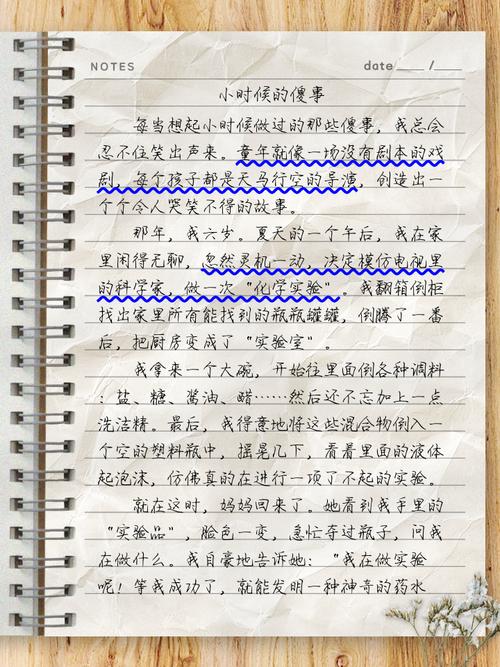 NOTES
date ____ / ____
小时候的傻事
每当想起小时候做过的那些傻事，我总会
忍不住笑出声来。童年就像一场没有剧本的戏
剧，每个孩子都是天马行空的导演，创造出一
个个令人哭笑不得的故事。
那年，我六岁。夏天的一个午后，我在家
里闲得无聊，忽然灵机一动，决定模仿电视里
的科学家，做一次“化学实验”。我翻箱倒柜
找出家里所有能找到的瓶瓶罐罐，倒腾了一番
后，把厨房变成了“实验室”。
我拿来一个大碗，开始往里面倒各种调料
：盐、糖、酱油、醋……然后还不忘加上一点
洗洁精。最后，我得意地将这些混合物倒入一
个空的塑料瓶中，摇晃几下，看着里面的液体
起泡沫，仿佛真的在进行一项了不起的实验。
就在这时，妈妈回来了。她看到我手里的
“实验品”，脸色一变，急忙夺过瓶子，问我
在做什么。我自豪地告诉她：“我在做实验
呢！等我成功了，就能发明一种神奇的药水